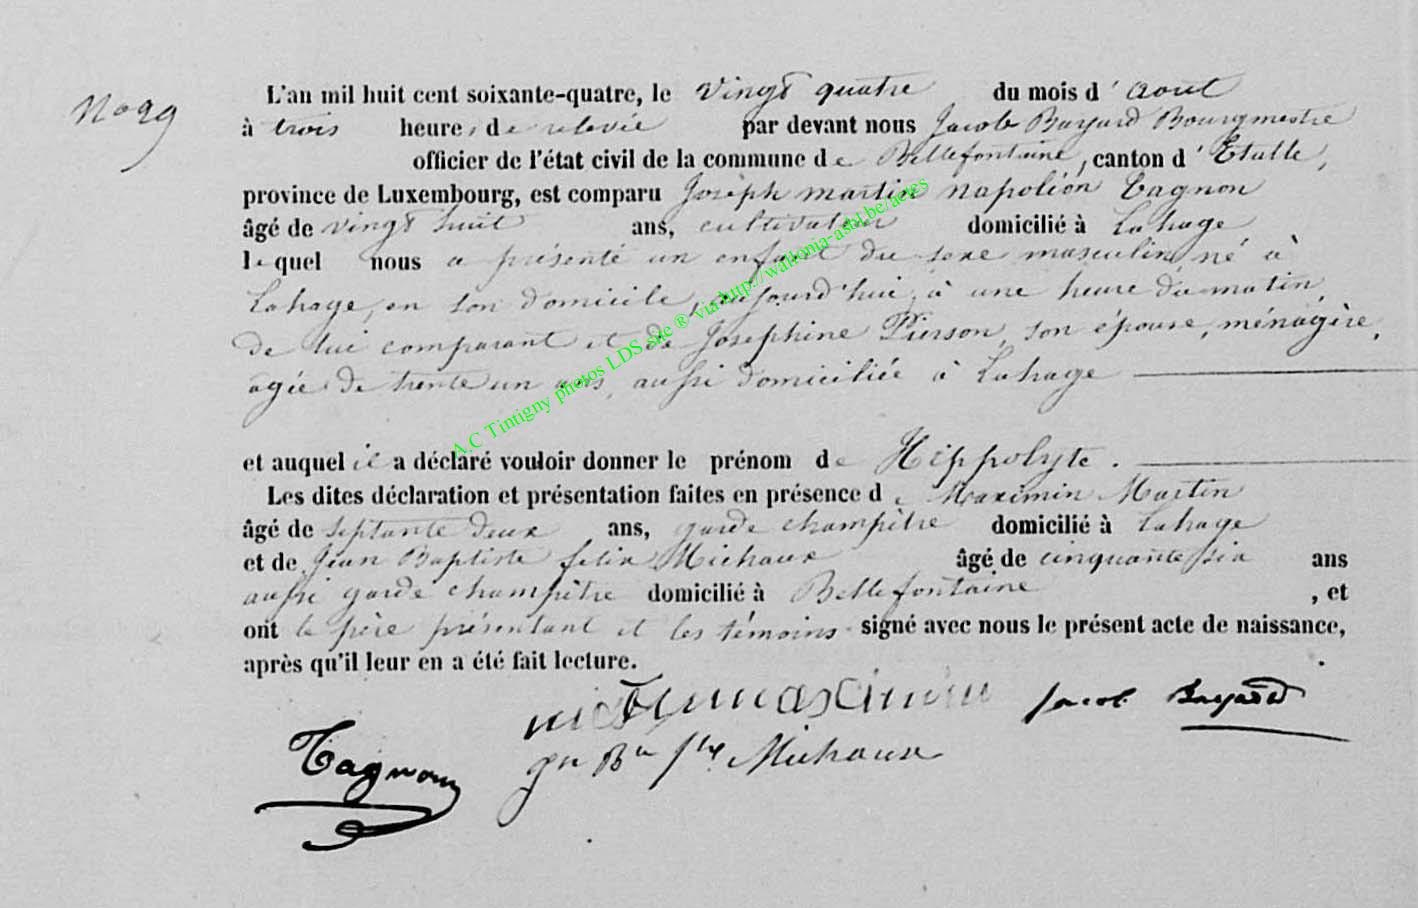 No 29
L'an mil huit cent soixante-quatre, le vingt quatre du mois d'aout
à trois heures de relevée par devant nous Jacob Bayard Bourgmestre
officier de l'état civil de la commune de Bellefontaine, canton d'Etalle,
province de Luxembourg, est comparu Joseph martin napoléon Tagnon
âgé de vingt huit ans, cultivateur domicilié à Lahage
lequel nous a présenté un enfant du sexe masculin, né à
Lahage, en son domicile, aujourd'hui, à une heure du matin,
de lui comparant et de Josephine Pierson, son épouse, ménagère,
agée de trente un ans, aussi domiciliée à Lahage
et auquel il a déclaré vouloir donner le prénom de Hippolyte.
Les dites déclaration et présentation faites en présence de Maximin Martin
âgé de septante deux ans, garde champêtre domicilié à Lahage
et de Jean Baptiste felix Michaux âgé de cinquante six ans
aussi garde champêtre domicilié à Bellefontaine, et
ont le père présentant et les témoins signé avec nous le présent acte de naissance,
après qu'il leur en a été fait lecture.
Jacob Bayard
Tagnon
Michaux
A.C Tintigny photos LDS site ® via http://wallonia-asbl.be/actes